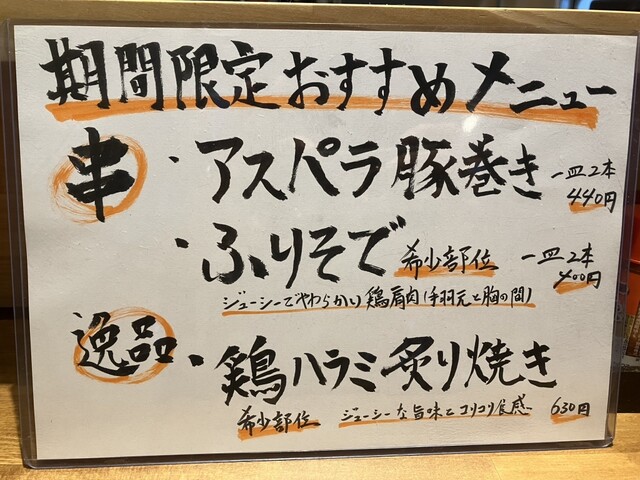 期間限定おすすめメニュー
串・アスパラ豚巻き 一皿2本 440円
・ふりそで 希少部位 一皿2本 400円
ジューシーでやわらかい鶏肩肉(手羽元と胸の間)
逸品・鶏ハラミ炙り焼き
希少部位 ジューシーな旨味とコリコリ食感 630円